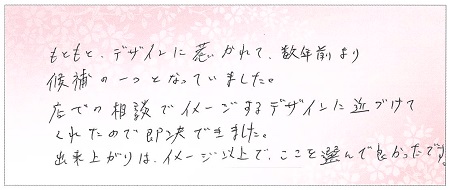 もともと、デザインに惹かれて、数年前より
候補の一つとなっていました。
店での相談でイメージするデザインに近づけて
くれたので即決できました。
出来上がりは、イメージ以上で、ここを選んで良かったです。